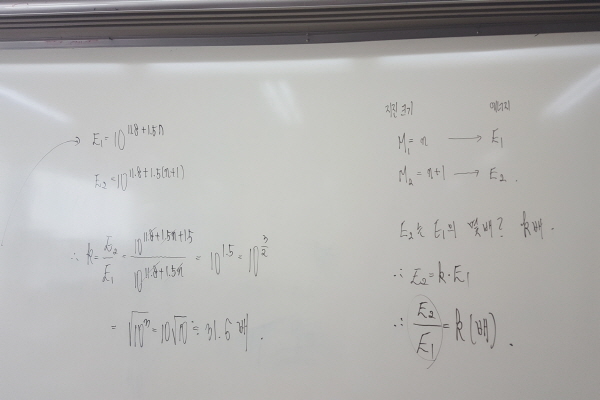 E₁=10^{11.8+1.5n}
E₂=10^{11.8+1.5(n+1)}
∴ k=E₂/E₁=10^{11.8+1.5n+1.5}/10^{11.8+1.5n} = 10^{1.5} = 10^{3/2}
= √10³=10√10≒31.6배.
지진 크기 에너지
M₁=n → E₁
M₂=n+1 → E₂.
E₂는 E₁의 몇배? k배.
∴ E₂=k·E₁
∴ E₂/E₁=k(배).